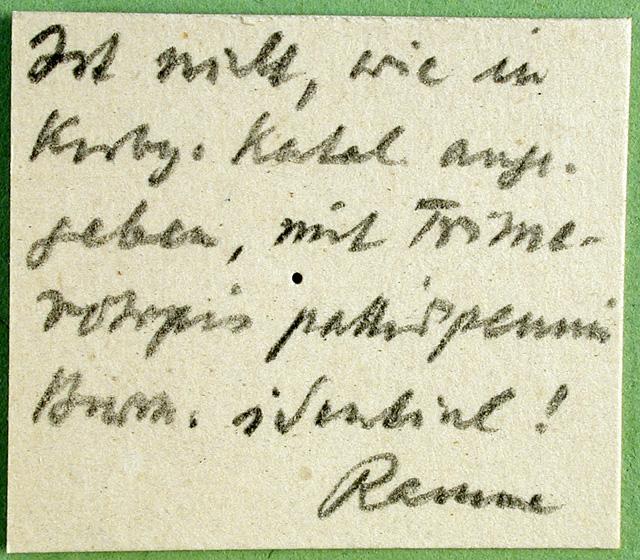 Ist nicht, wie in
Kirby. Katal ange-
geben, mit Trime-
rotropis pallidipennis
Burm. identical!
Ramme